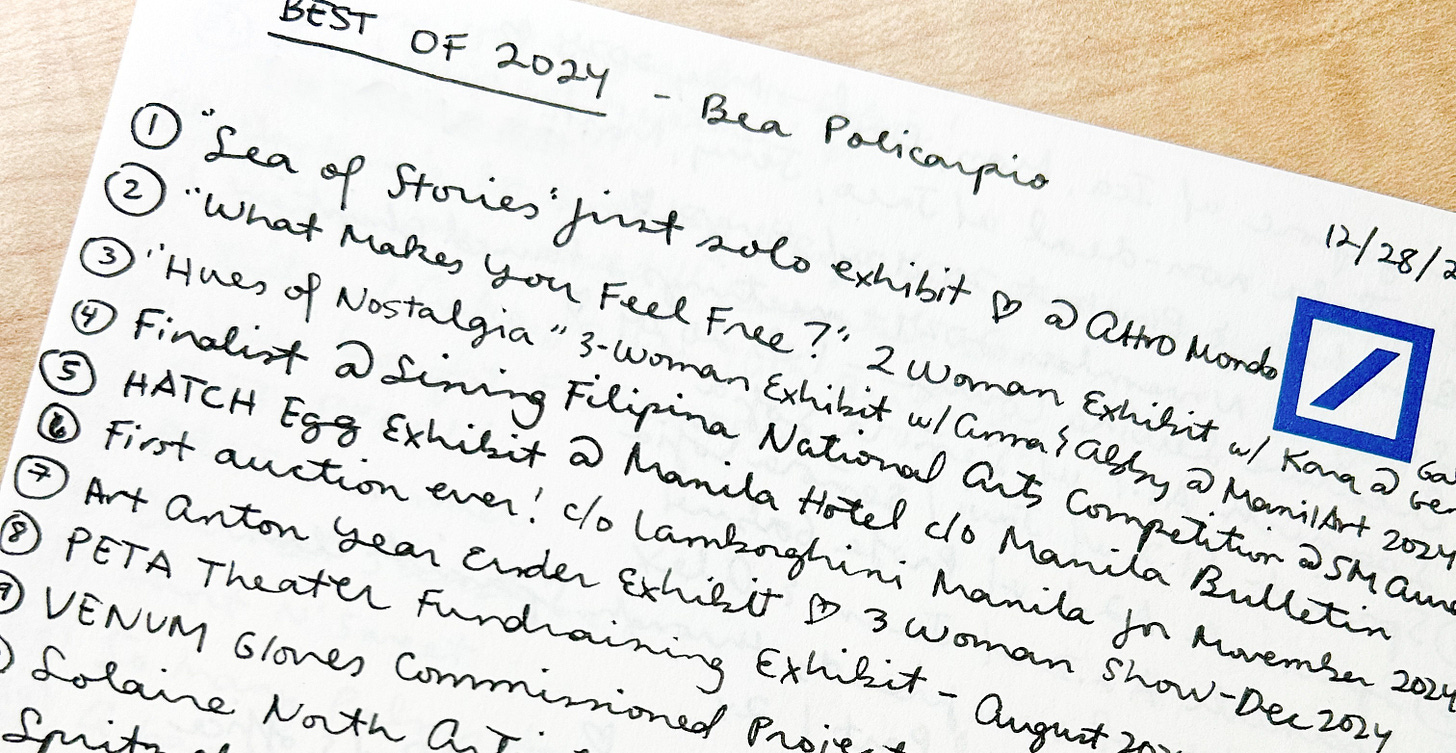 BEST OF 2024 - Bea Policarpio
12/28/2
① "Sea of Stories" first solo exhibit ♡ @ Altro Mondo
② "What Makes you Feel Free?" 2 Woman Exhibit w/ Kara @
③ "Hues of Nostalgia" 3-Woman Exhibit w/ Anna & Abby @ ManilArt 2024
④ Finalist @ Sining Filipina National Arts Competition @ SM Aura
⑤ HATCH Egg Exhibit @ Manila Hotel c/o Manila Bulletin
⑥ First auction ever! c/o Lamborghini Manila for November 2024
⑦ Art Anton Year Ender Exhibit ♡ 3 Woman Show - Dec 2024
⑧ PETA Theater Fundraising Exhibit - August 202
⑨ VENUM Gloves Commissioned Project
Solaire North Art
Spritz